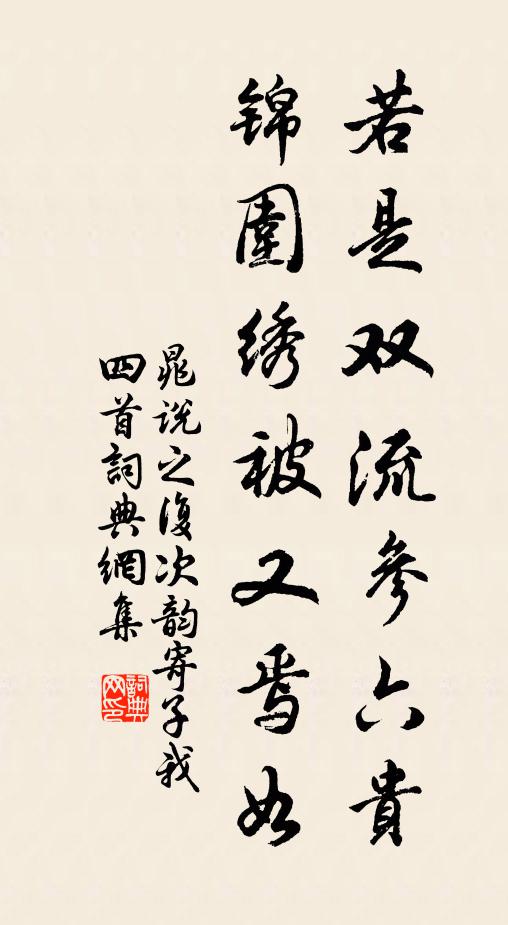 若是双流参六貴
锦圍绣被又焉如
晁说之復次韵寄子我
四首詞典網集
詞典
网印